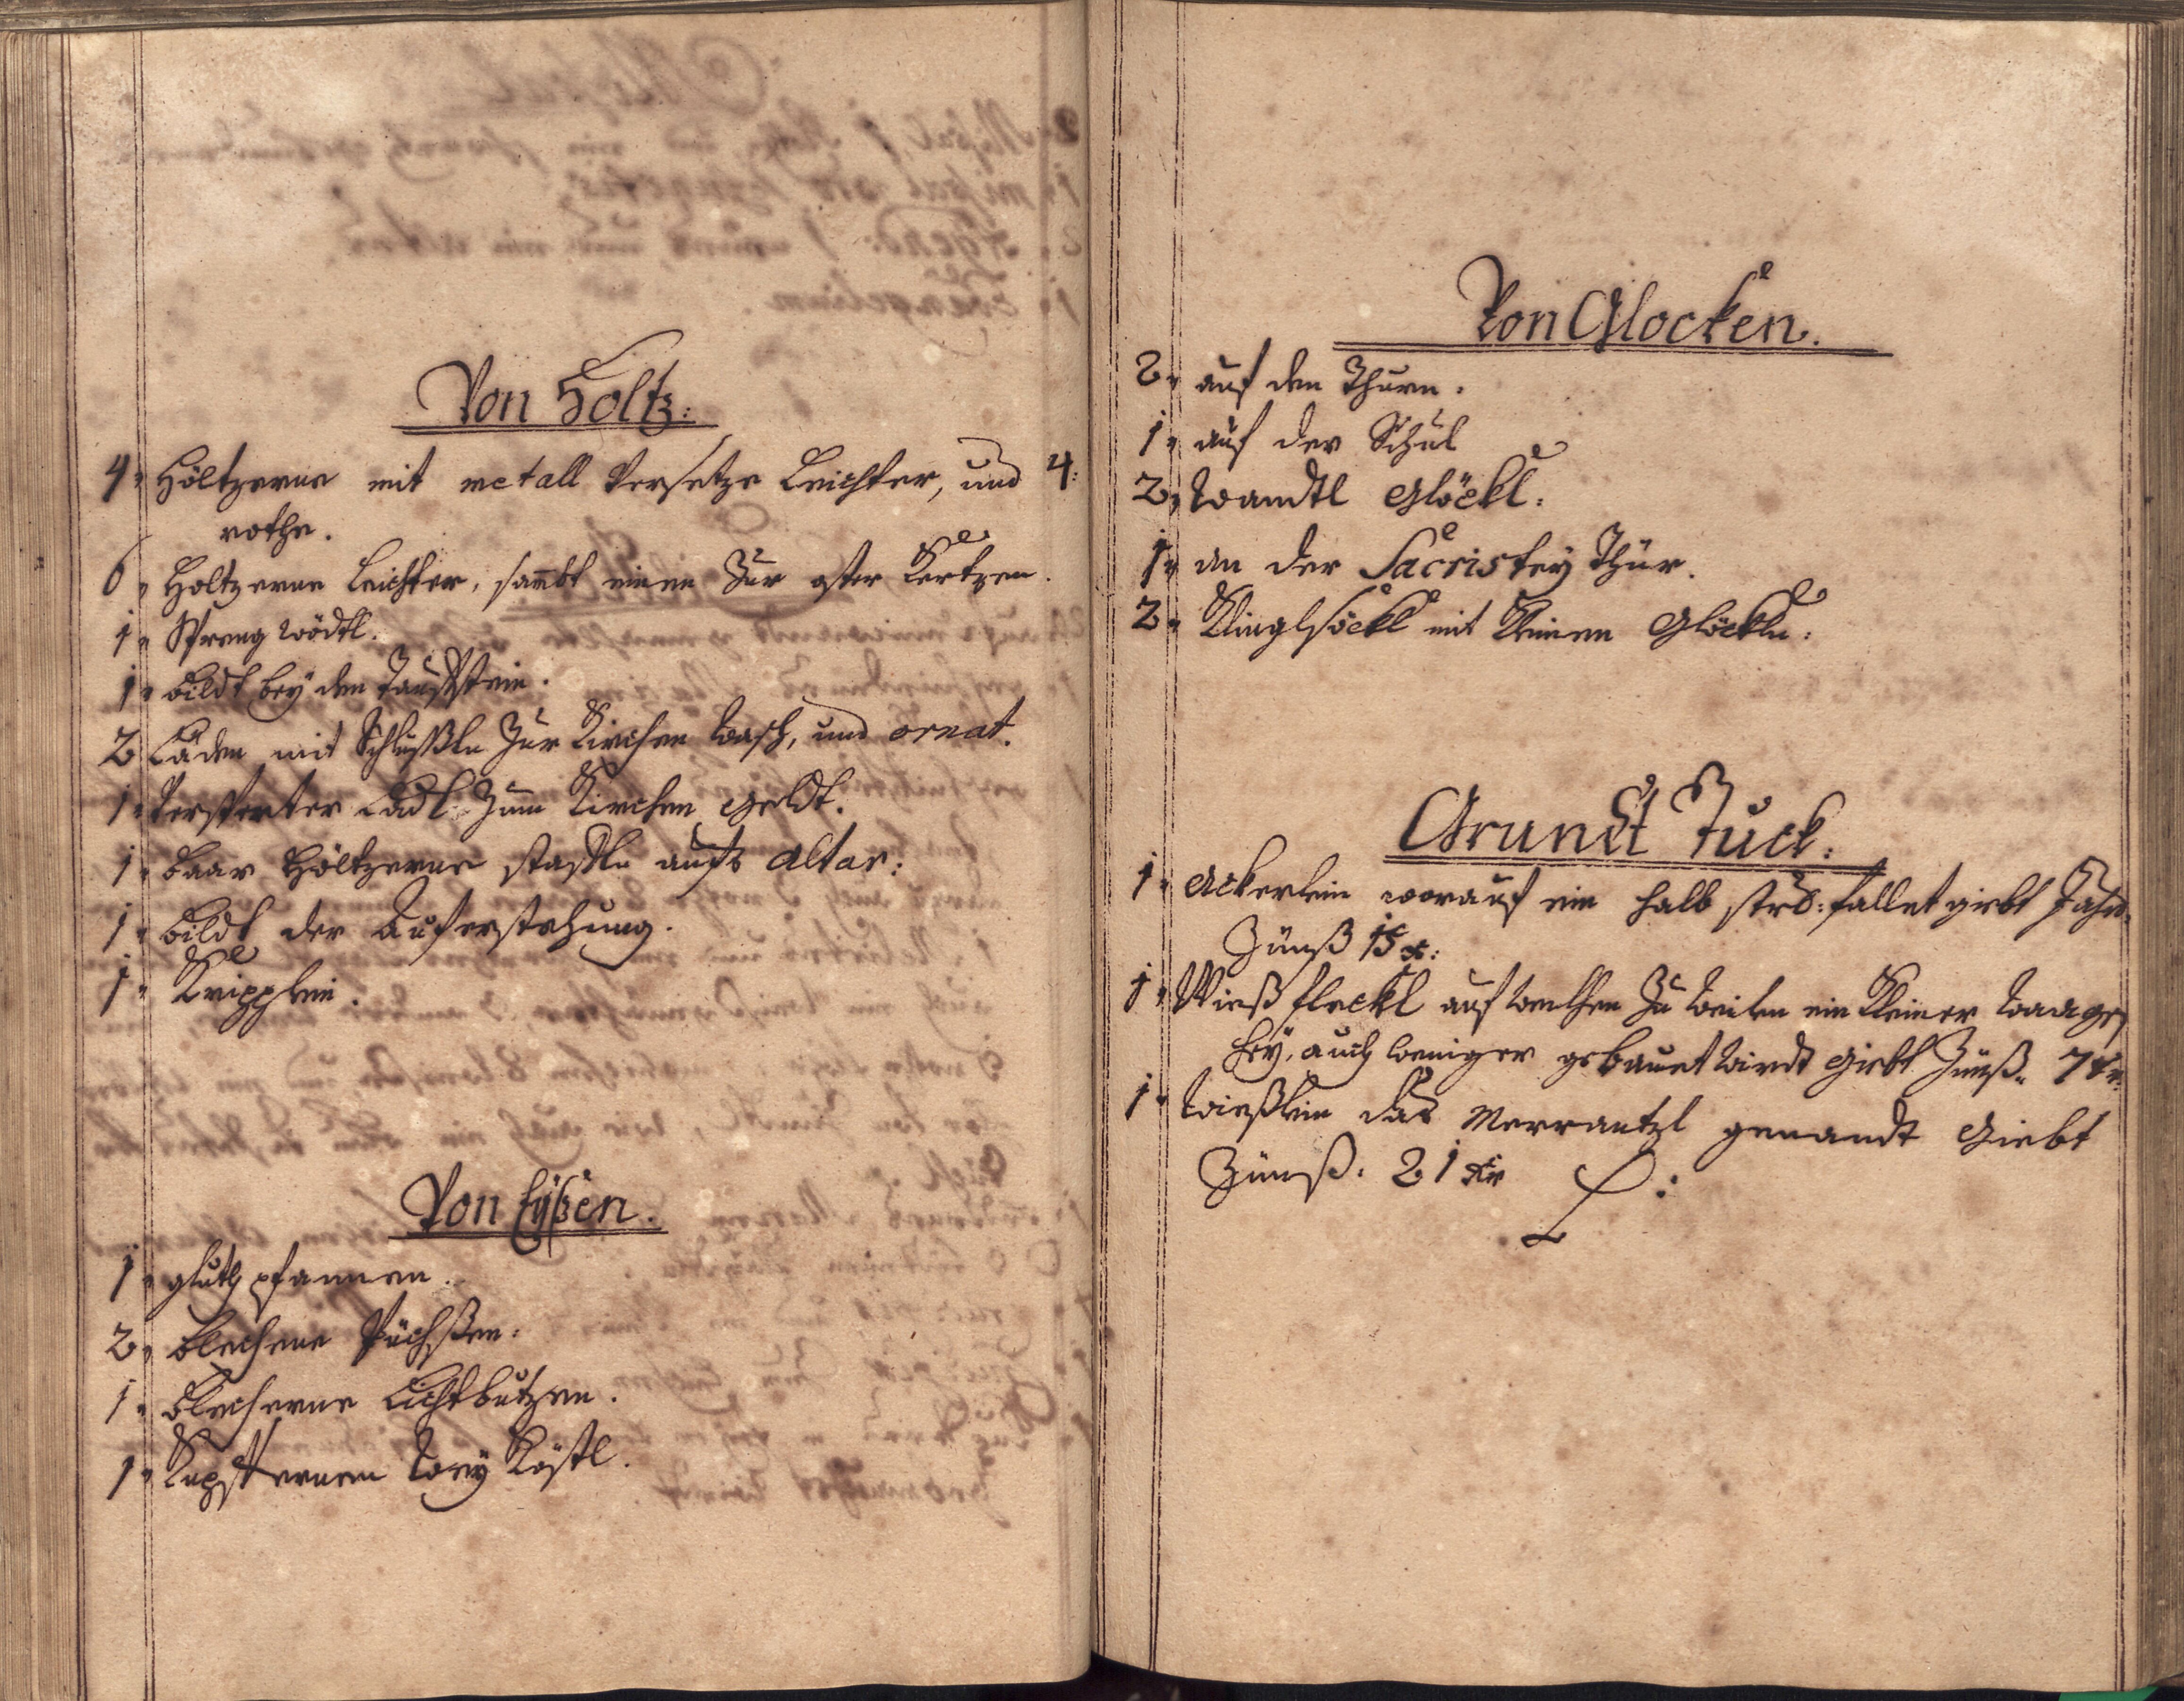 Von Holtz:
4: Höltzerne mit metall Versetze Leichter, und 4:
rothe.
6 Holtzerne Leichter, sambt einen Zur oster Kertzen.
1 Spreng wödtl.
1 bildt bey den Tauffstein.
2 Laden mit Schlüßln Zur Kirchen wasch, und ornat.
1 Versperter Ladl Zum Kirchen geldt.
1 baar Höltzerne staffln aufs altar:
1 bildt der Auferstehung.
1 Kripplein.
Von Eyßen.
1 gluth pfannen.
2 blechene Püchßen:
1 blecherne Lichtbutzen.
1 Kupffernen wey Köstl.
Von Glocken.
2 auf den Thurn.
1 auf der Schul
2 wandtl Glöckl:
1 an der Sacristey Thür.
2 Klinglsöckl mit Kleinen Glöckln:
Grundt Stuck:
1 Ackerlein worauf ein halb str: fallet giebt Jahr
Zünß 15 x:
1 Wieß fleckl auf welchen Zu weilen ein Kleiner waagen
Hey, auch weniger gebauet wirdt giebt Zünß. 7 xr:
1 wießlein das genandt Giebt
Zünß: 21 xr